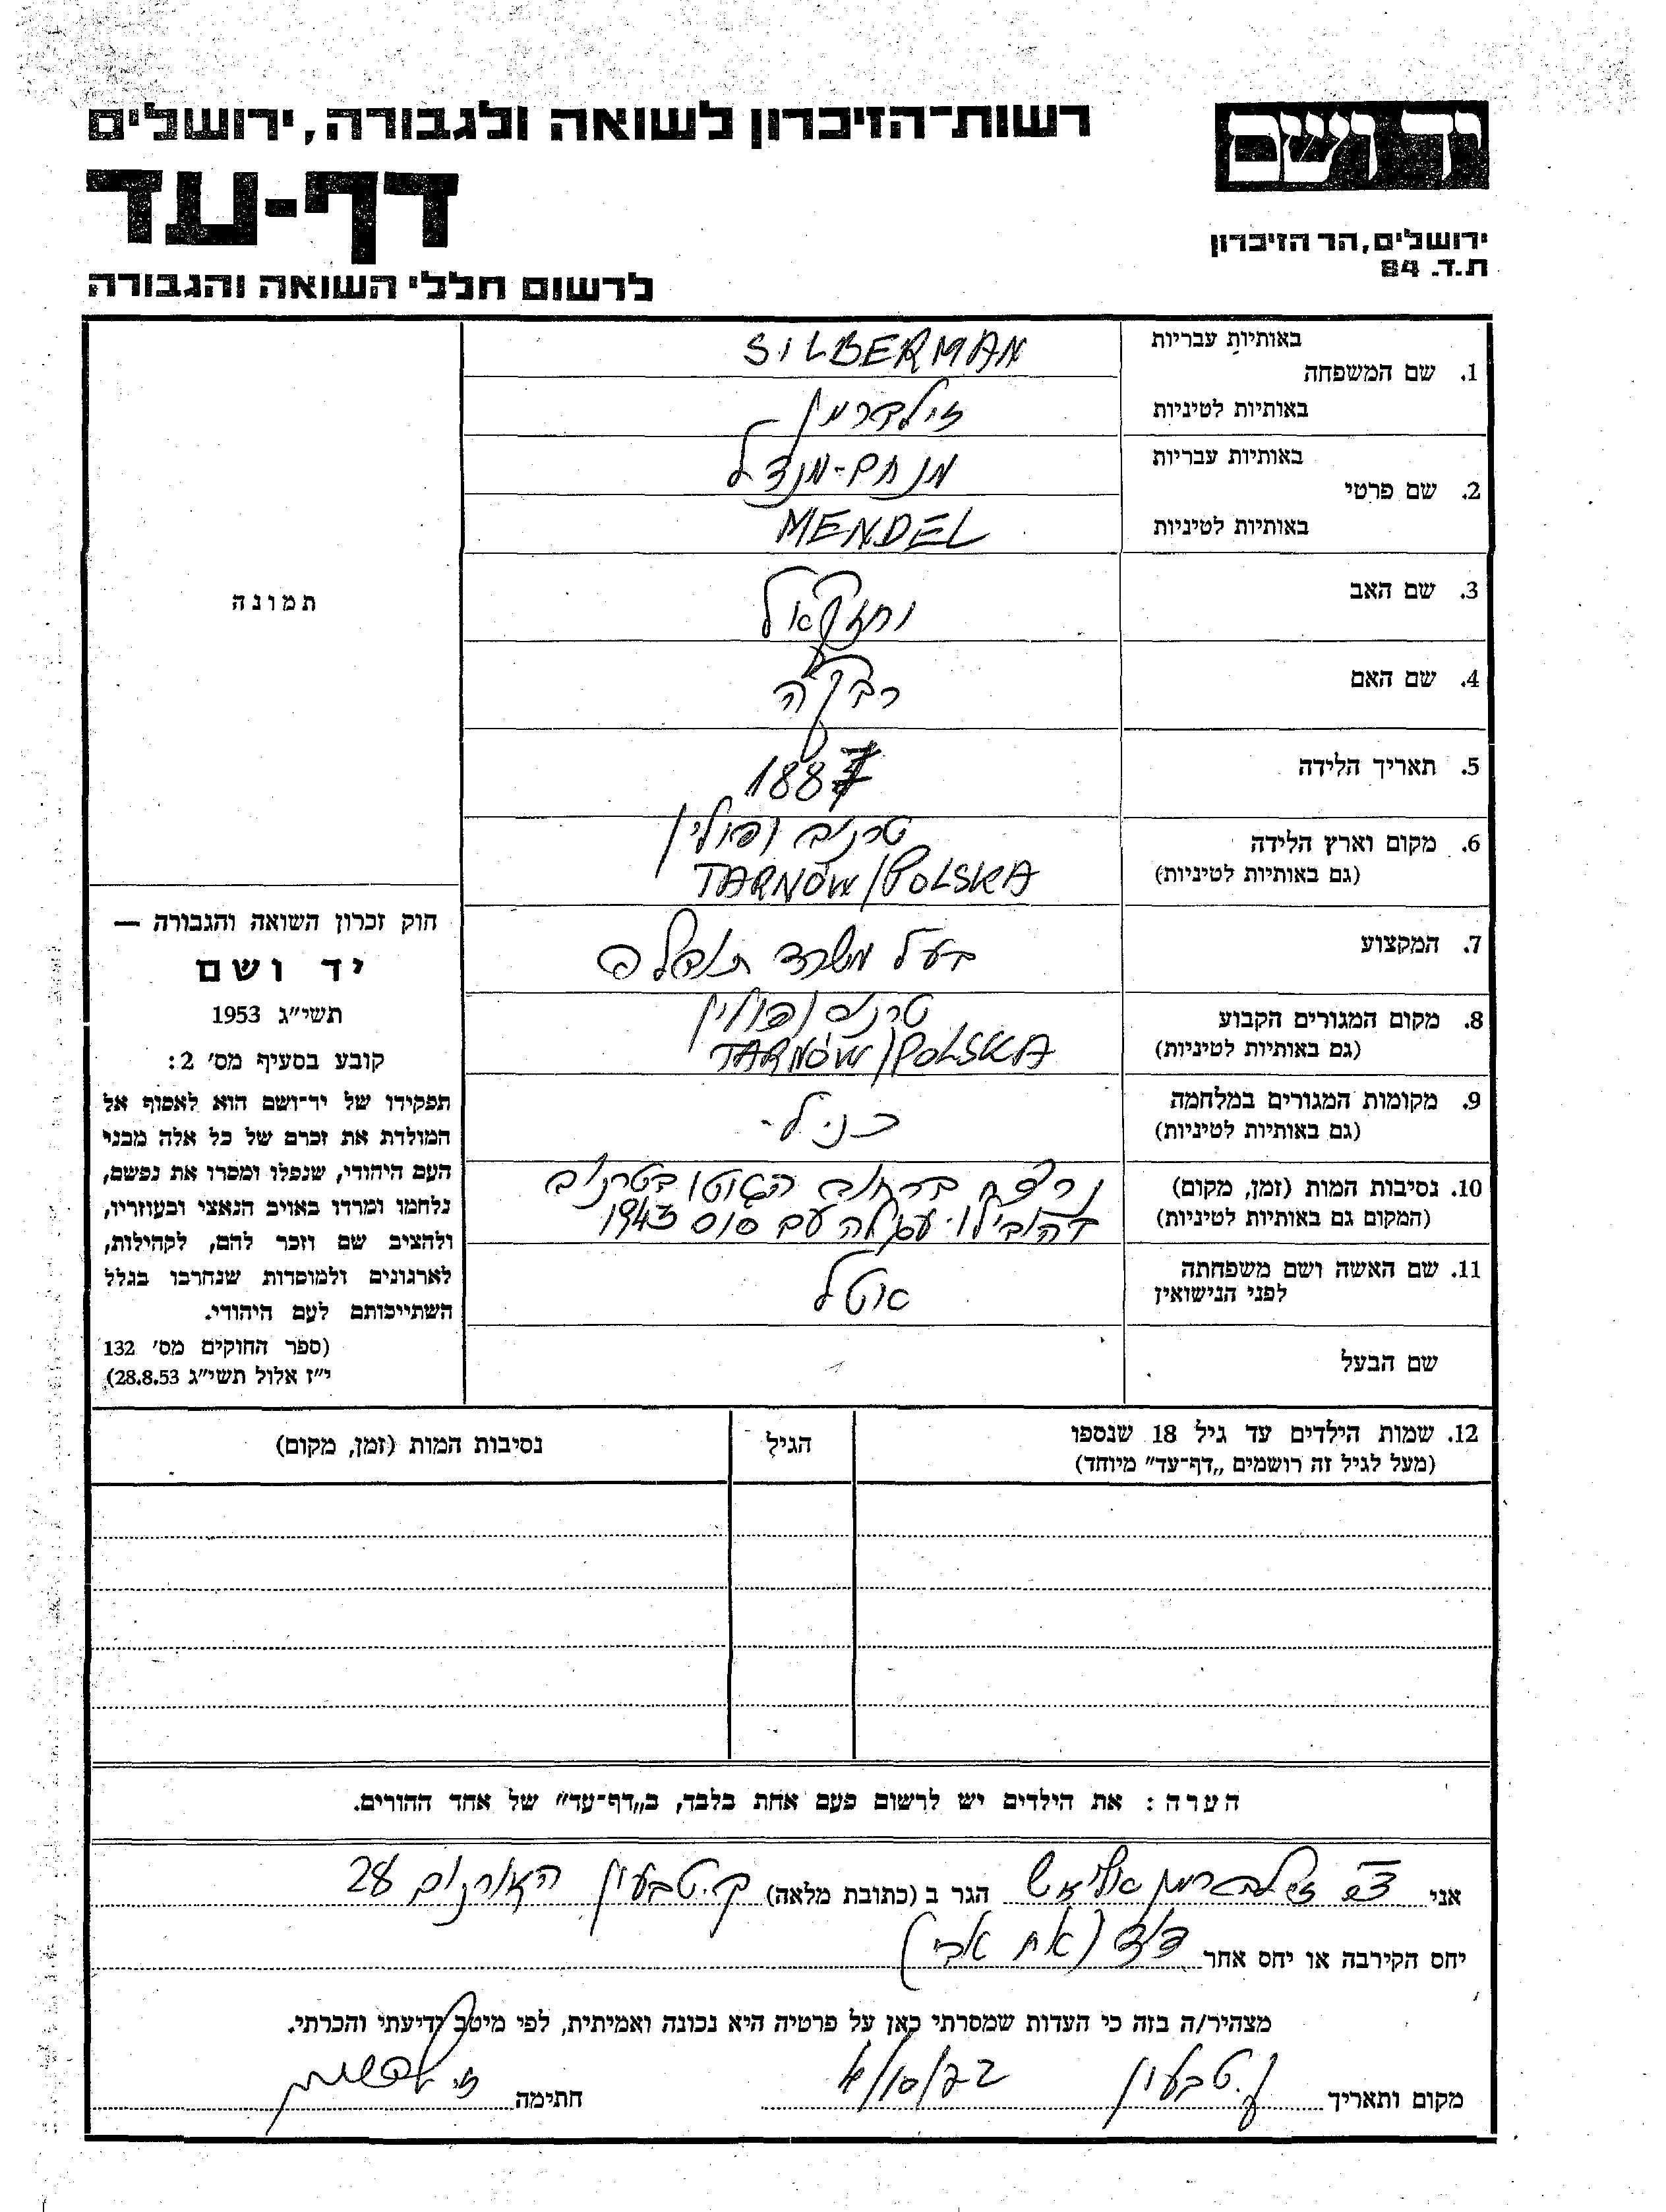 רשות־הזיכרון לשואה ולגבורה, ירושלים
יד ושם
דף-עד
ירושלים, הר הזיכרון
ת.ד. 84
לרשום חללי השואה והגבורה
באותיות עבריות SILBERMAN
1. שם המשפחה
באותיות לטיניות זילברמן
באותיות עבריות מנחם-מנדל
2. שם פרטי
באותיות לטיניות MENDEL
תמונה
3. שם האב יחזקאל
4. שם האם רבקה
5. תאריך הלידה 1887
6. מקום וארץ הלידה טרנוב/פולין
(גם באותיות לטיניות) TARNÓW/POLSKA
7. המקצוע בעל משרד
8. מקום המגורים הקבוע טרנוב/פולין
(גם באותיות לטיניות) TARNÓW/POLSKA
9. מקומות המגורים במלחמה כנ.ל.
(גם באותיות לטיניות)
10. נסיבות המות (זמן, מקום) נרצח ברחוב הגטו בטרנוב
(המקום גם באותיות לטיניות) בהובילו עגלה עם סוס 1943
11. שם האשה ושם משפחתה אטל
לפני הנישואין
שם הבעל
חוק זכרון השואה והגבורה —
יד ושם
תשי״ג 1953
קובע בסעיף מס׳ 2:
תפקידו של יד־ושם הוא לאסוף אל
המולדת את זכרם של כל אלה מבני
העם היהודי, שנפלו ומסרו את נפשם,
נלחמו ומרדו באויב הנאצי ובעוזריו,
ולהציב שם וזכר להם, לקהילות,
לארגונים ולמוסדות שנחרבו בגלל
השתייכותם לעם היהודי.
(ספר החוקים מס׳ 132
י״ז אלול תשי״ג 28.8.53)
12. שמות הילדים עד גיל 18 שנספו הגיל נסיבות המות (זמן, מקום)
(מעל לגיל זה רושמים „דף־עד״ מיוחד)
הערה: את הילדים יש לרשום פעם אחת בלבד, ב„דף־עד״ של אחד ההורים.
אני זילברמן הגר ב (כתובת מלאה) ק.טבעון האורנים 28
יחס הקירבה או יחס אחר דוד (אח אבי)
מצהיר/ה בזה כי העדות שמסרתי כאן על פרטיה היא נכונה ואמיתית, לפי מיטב ידיעתי והכרתי.
מקום ותאריך ק.טבעון חתימה זילברמן